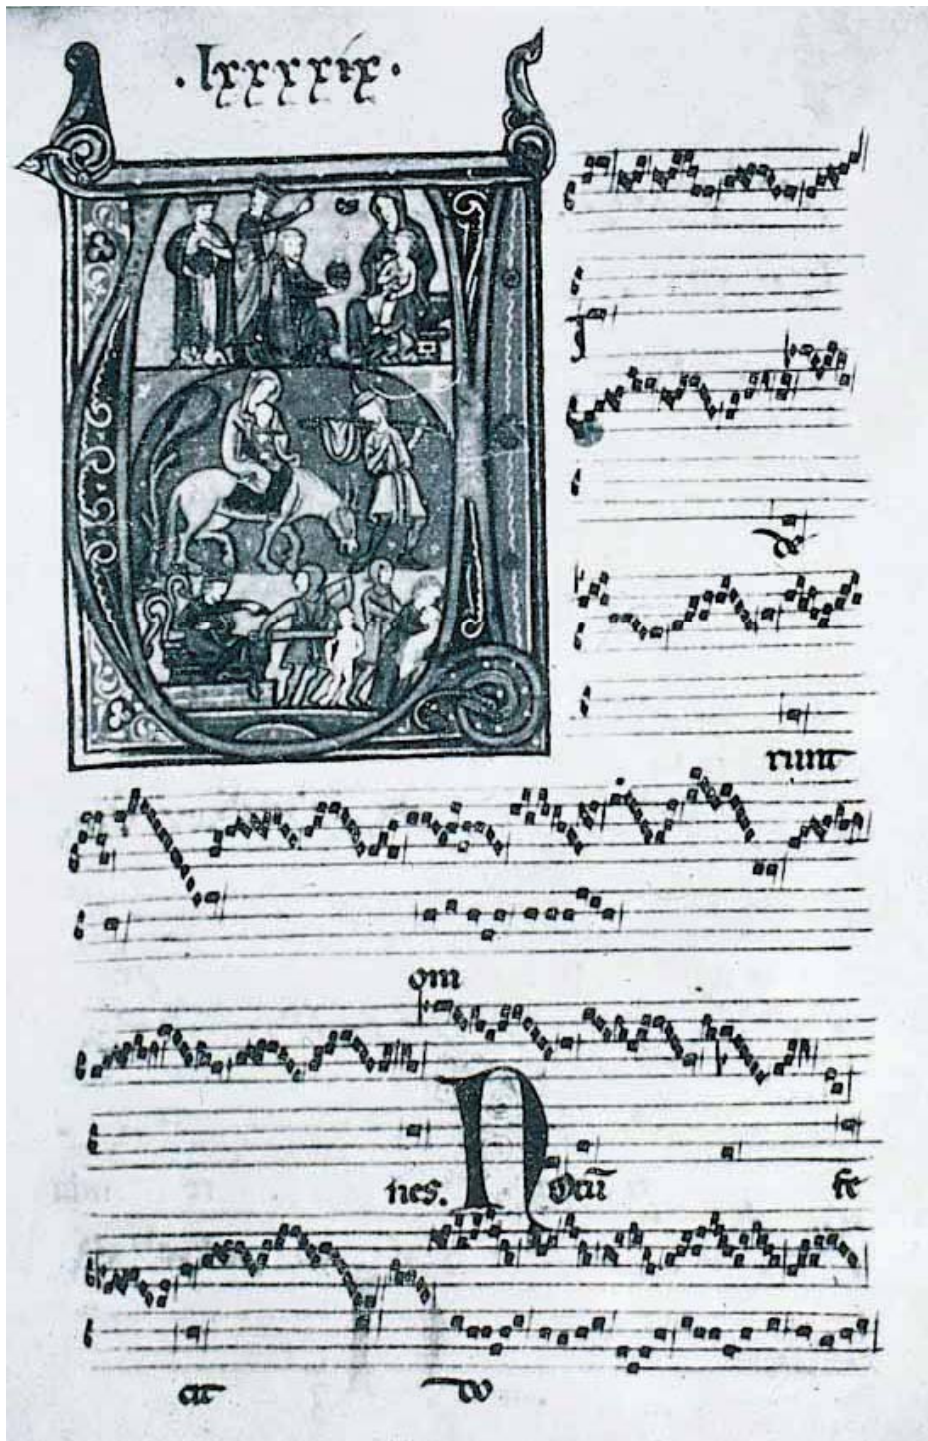 ·lxxxxix·
V
I
de
runt
om
nes. Notũ fe
cit do